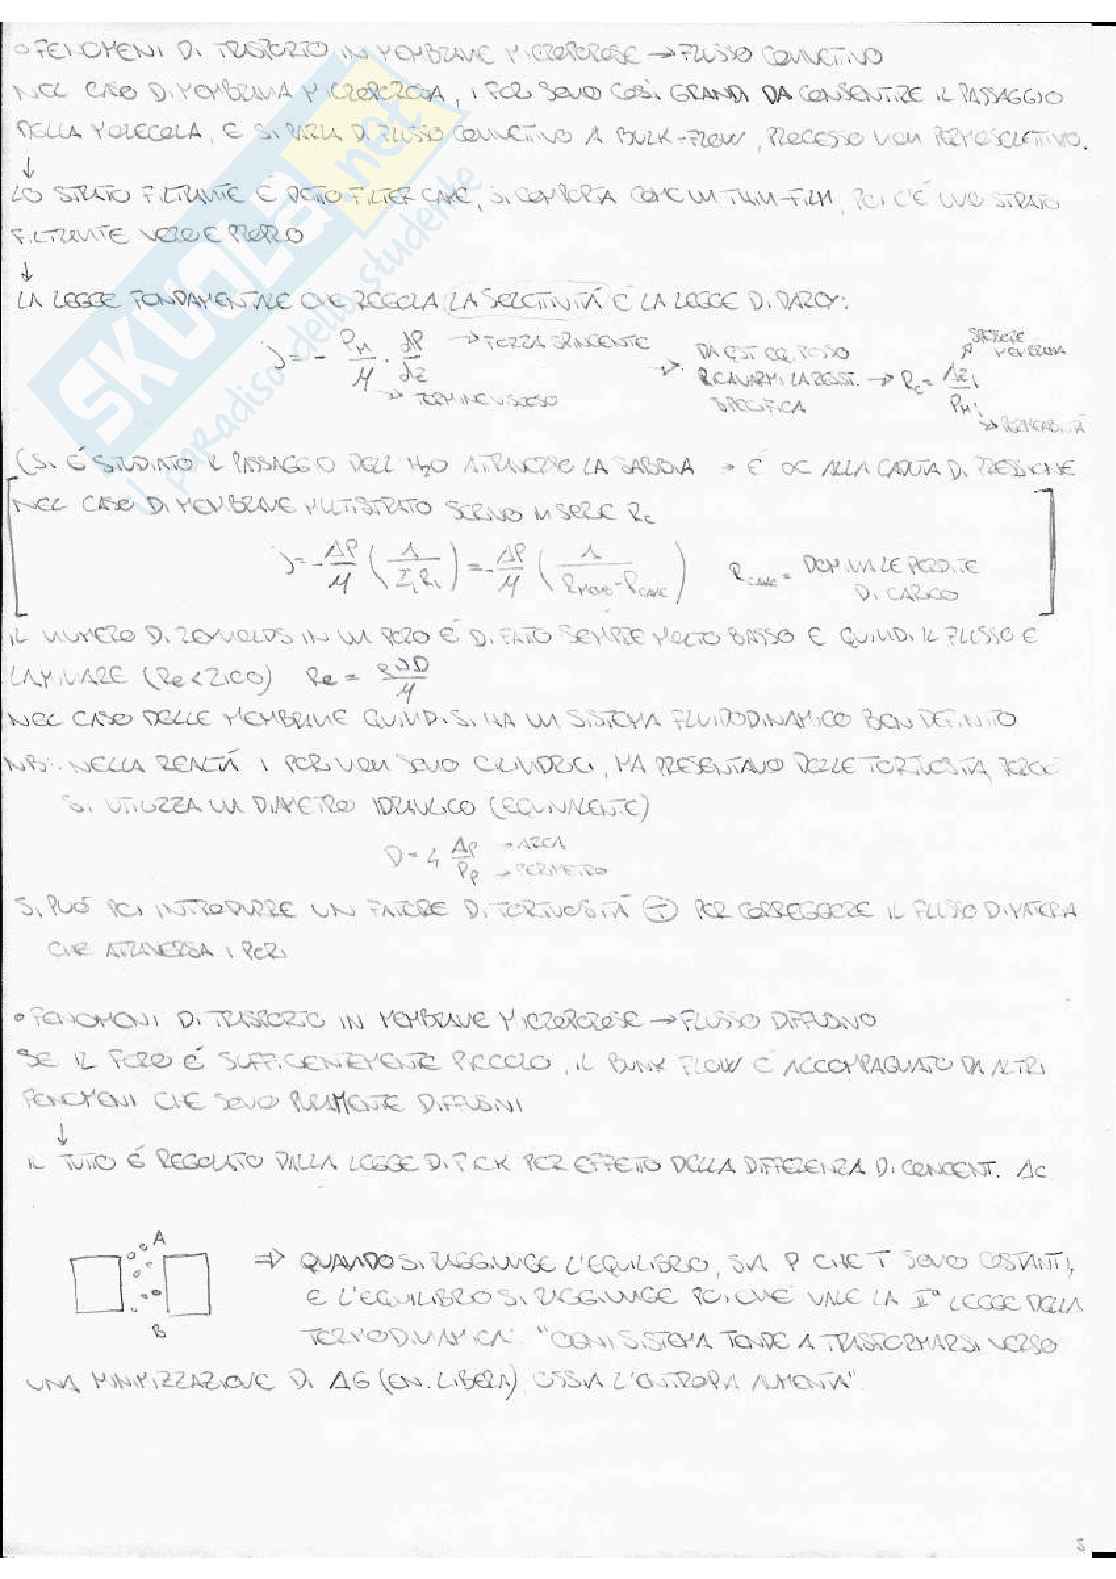 ° FENOMENI DI TRASPORTO IN MEMBRANE MICROPOROSE → FLUSSO CONVETTIVO
NEL CASO DI MEMBRANA MICROPOROSA, I PORI SONO COSÌ GRANDI DA CONSENTIRE IL PASSAGGIO
DELLA MOLECOLA, E SI PARLA DI FLUSSO CONVETTIVO A BULK-FLOW, PROCESSO NON PERMSELETTIVO.
↓
LO STRATO FILTRANTE È DETTO FILTER CAKE, SI COMPORTA COME UN THIN-FILM, POI C'È UNO STRATO
FILTRANTE VERO E PROPRIO
↓
LA LEGGE FONDAMENTALE CHE REGOLA LA SELETTIVITÀ È LA LEGGE DI DARCY:
j = - P_M/μ · dP/dz → FORZA SPINGENTE
→ TERMINE VISCOSO
→ DA QST EQ. POSSO RICAVARMI LA RESIST. SPECIFICA → R_c = Δz_i/P_M,i
→ SPESSORE MEMBRANA
→ PERMEABILITÀ
(SI È STUDIATO IL PASSAGGIO DELL'H2O ATTRAVERSO LA SABBIA → È ∝ ALLA CADUTA DI PRESSIONE
NEL CASO DI MEMBRANE MULTISTRATO SCRIVO IN SERIE R_c
j = - ΔP/μ (1/Σ_i R_i) = - ΔP/μ (1/R_MEMB - R_CAKE) R_CAKE = DOMINA LE PERDITE DI CARICO
IL NUMERO DI REYNOLDS IN UN PORO È DI FATTO SEMPRE MOLTO BASSO E QUINDI IL FLUSSO È
LAMINARE (Re < 2100) Re = ρvD/μ
NEL CASO DELLE MEMBRANE QUINDI SI HA UN SISTEMA FLUIDODINAMICO BEN DEFINITO
NB: NELLA REALTÀ I PORI NON SONO CILINDRICI, MA PRESENTANO DELLE TORTUOSITÀ, PERCIÒ
SI UTILIZZA UN DIAMETRO IDRAULICO (EQUIVALENTE)
D = 4 A_P/P_P → AREA → PERIMETRO
SI PUÒ POI INTRODURRE UN FATTORE DI TORTUOSITÀ τ PER CORREGGERE IL FLUSSO DI MATERIA
CHE ATTRAVERSA I PORI
° FENOMENI DI TRASPORTO IN MEMBRANE MICROPOROSE → FLUSSO DIFFUSIVO
SE IL PORO È SUFFICIENTEMENTE PICCOLO, IL BUNK FLOW È ACCOMPAGNATO DA ALTRI
FENOMENI CHE SONO PURAMENTE DIFFUSIVI
↓
IL TUTTO È REGOLATO DALLA LEGGE DI FICK PER EFFETTO DELLA DIFFERENZA DI CONCENT. Δc
A
B
⇒ QUANDO SI RAGGIUNGE L'EQUILIBRO, SIA P CHE T SONO COSTANTI,
E L'EQUILIBRO SI RAGGIUNGE POICHÉ VALE LA IIª LEGGE DELLA
TERMODINAMICA: "OGNI SISTEMA TENDE A TRASFORMARSI VERSO
UNA MINIMIZZAZIONE DI ΔG (EN. LIBERA) OSSIA L'ENTROPIA AUMENTA"
SKUOLA.net
il paradiso dello studente